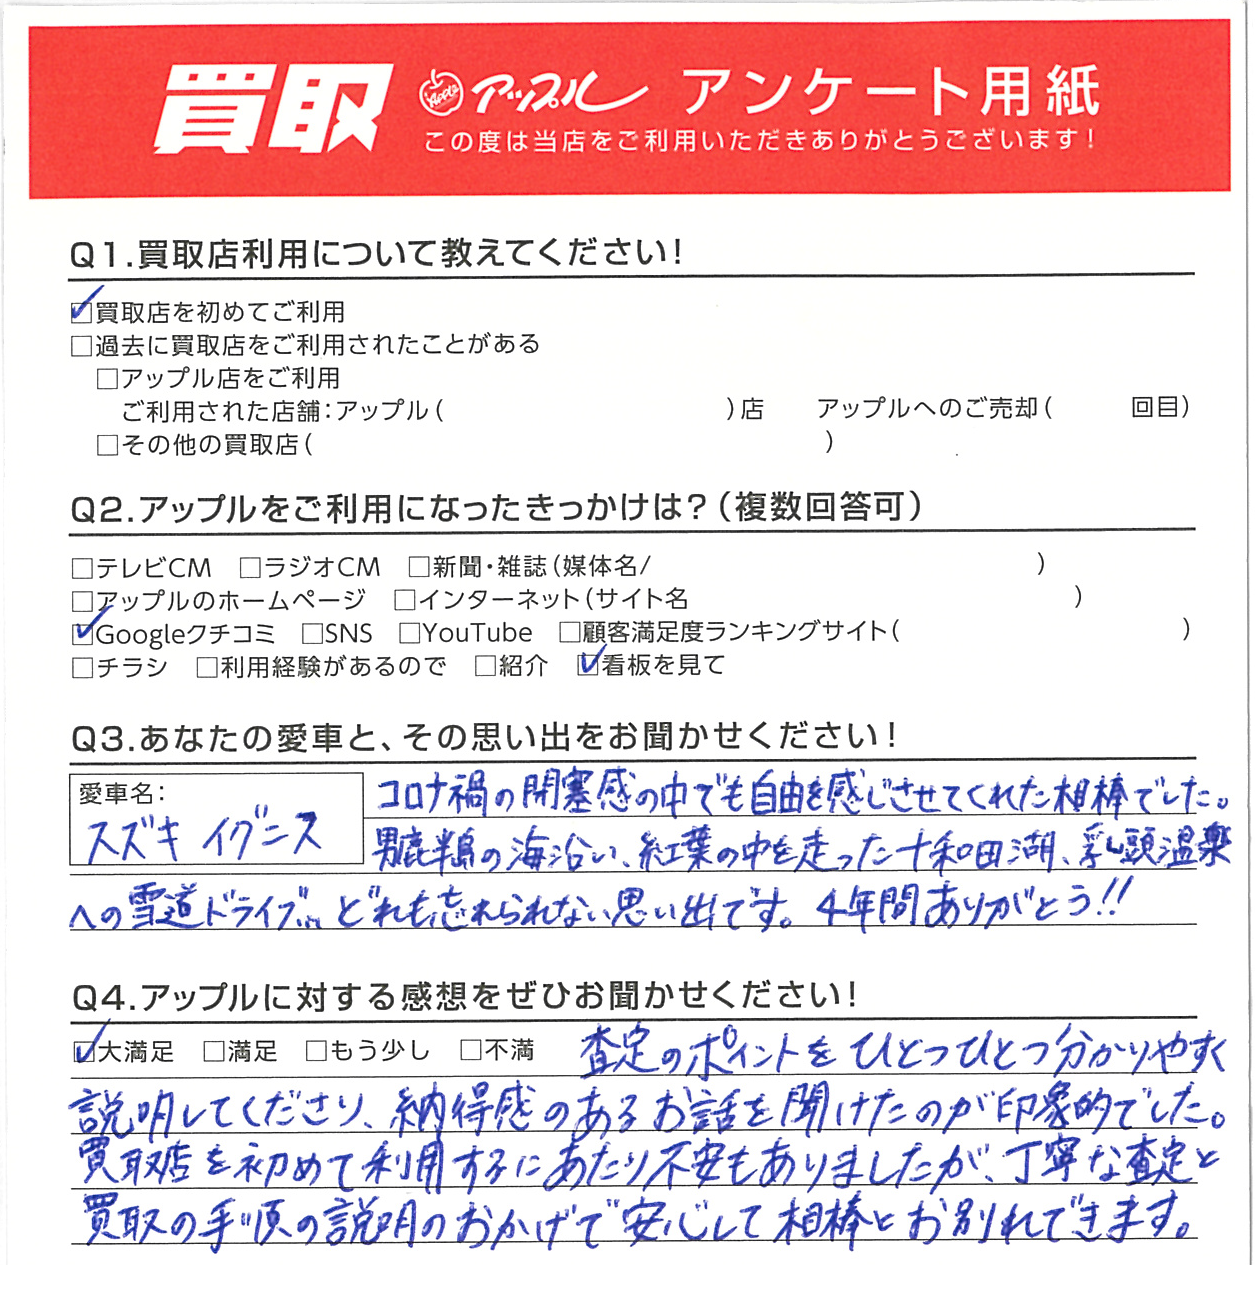 買取 Apple アップル アンケート用紙
この度は当店をご利用いただきありがとうございます!
Q1.買取店利用について教えてください!
☑買取店を初めてご利用
□過去に買取店をご利用されたことがある
□アップル店をご利用
ご利用された店舗:アップル( )店 アップルへのご売却( 回目)
□その他の買取店( )
Q2.アップルをご利用になったきっかけは?(複数回答可)
□テレビCM □ラジオCM □新聞・雑誌(媒体名/ )
□アップルのホームページ □インターネット(サイト名 )
☑Googleクチコミ □SNS □YouTube □顧客満足度ランキングサイト( )
□チラシ □利用経験があるので □紹介 ☑看板を見て
Q3.あなたの愛車と、その思い出をお聞かせください!
愛車名:
スズキ イグニス
コロナ禍の閉塞感の中でも自由を感じさせてくれた相棒でした。
男鹿半島の海沿い、紅葉の中を走った十和田湖、乳頭温泉
への雪道ドライブ… どれも忘れられない思い出です。4年間ありがとう!!
Q4.アップルに対する感想をぜひお聞かせください!
☑大満足 □満足 □もう少し □不満 査定のポイントをひとつひとつ分かりやすく
説明してくださり、納得感のあるお話を聞けたのが印象的でした。
買取店を初めて利用するにあたり不安もありましたが、丁寧な査定と
買取の手順の説明のおかげで安心して相棒とお別れできます。